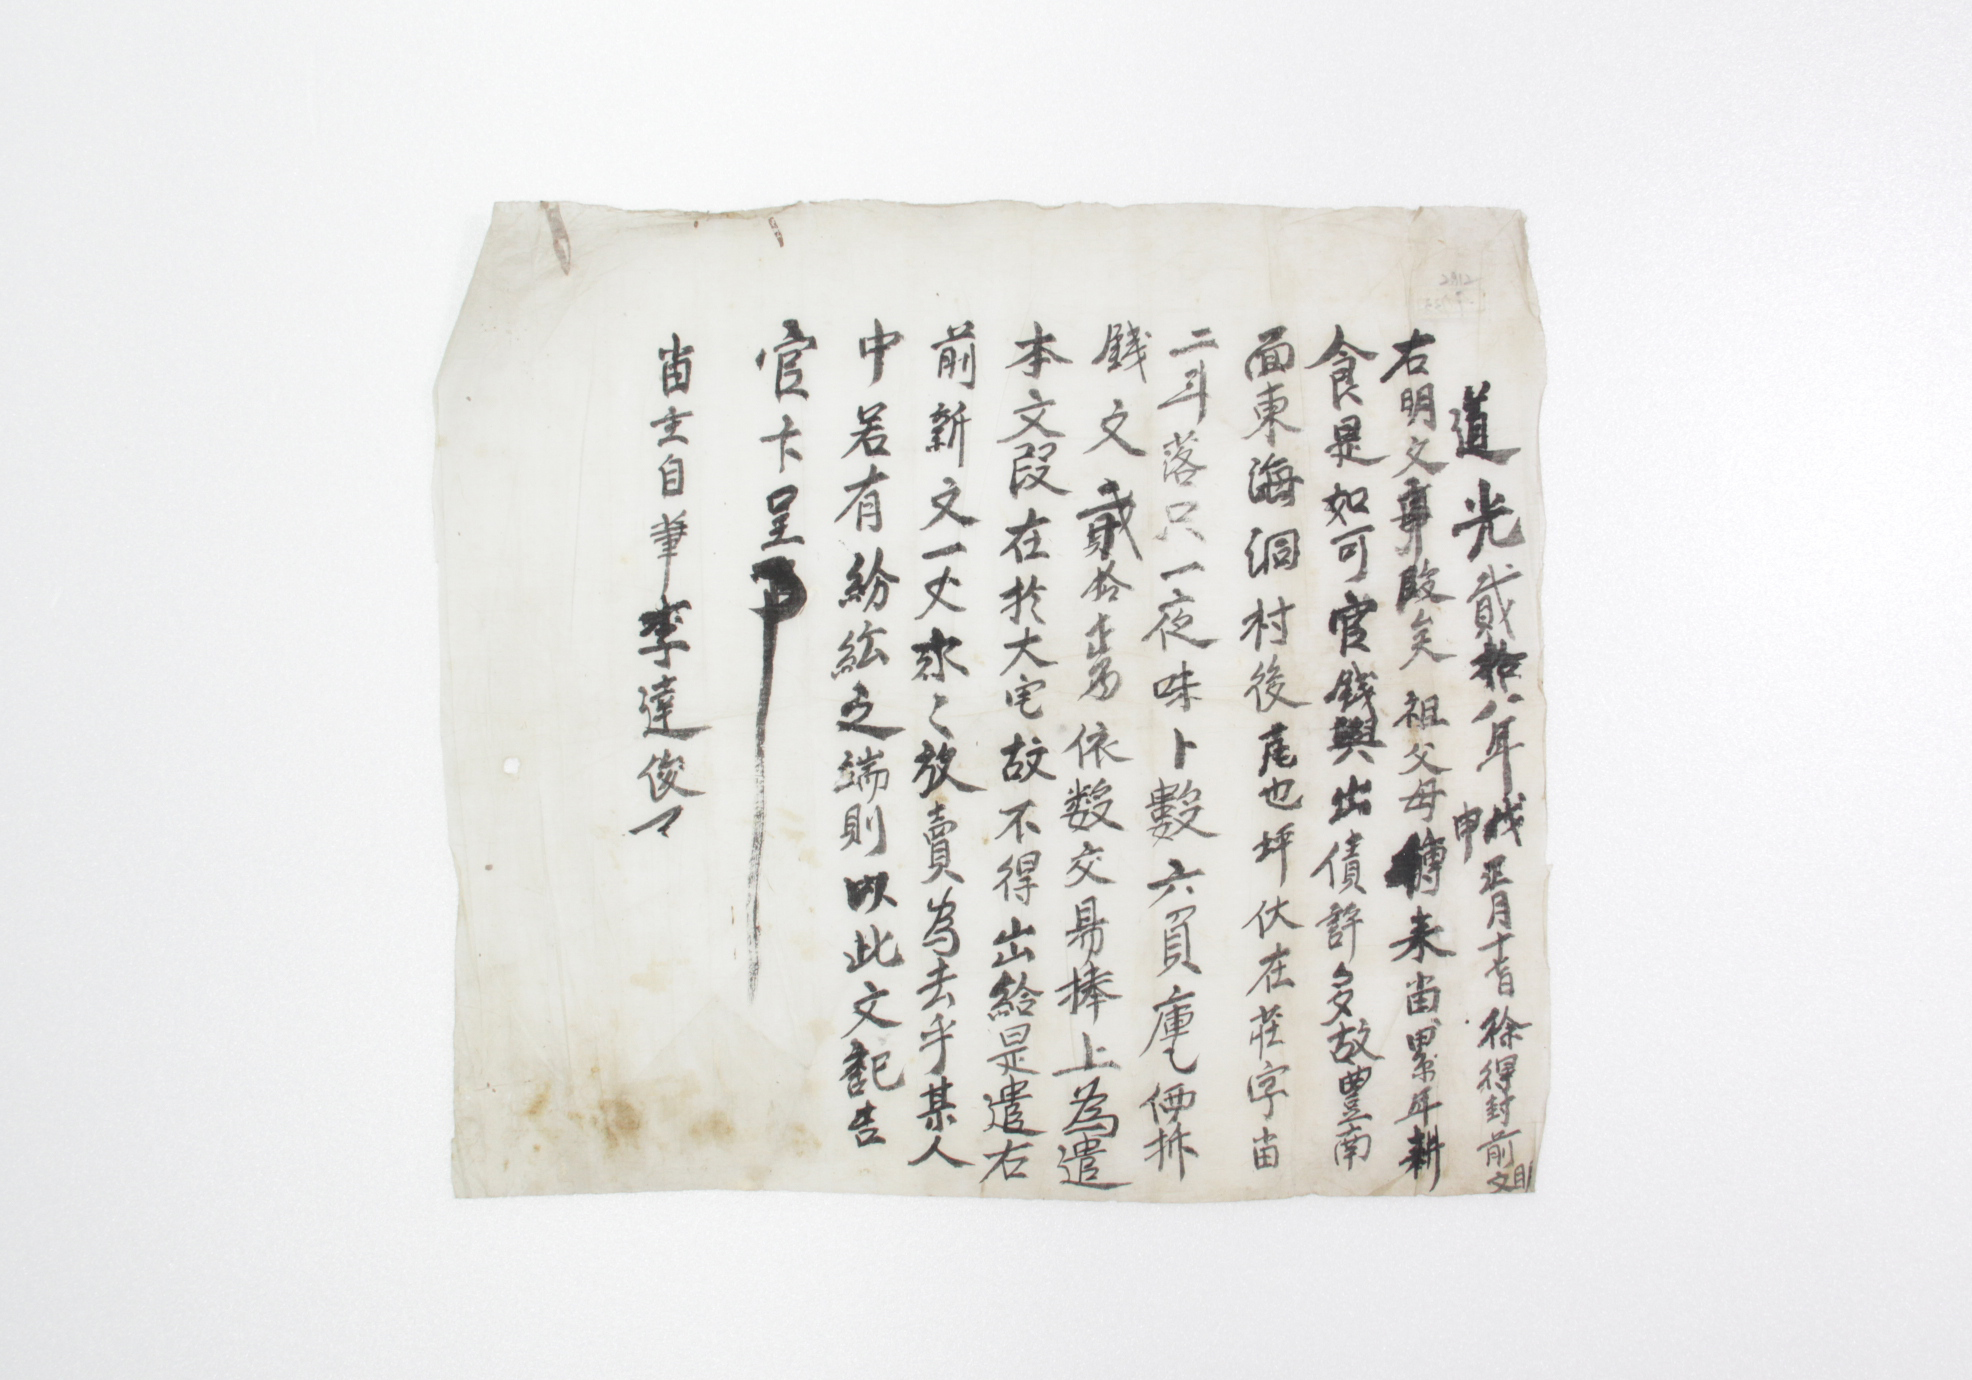 道光貳拾八年戊申正月十五日徐得封前明文
右明文事段矣祖父母傳来畓累年耕
食是如可官錢與出債許多故豊南
面東海洞村後尾也坪伏在莊字畓
二斗落只一夜味卜數六負庫乙価折
錢文貳拾五両依数交易捧上為遣
本文段在於大宅故不得出給是遣右
前新文一丈永〻放賣為去乎某人
中若有紛紜之端則以此文記告
官卞呈印
畓主自筆李達俊